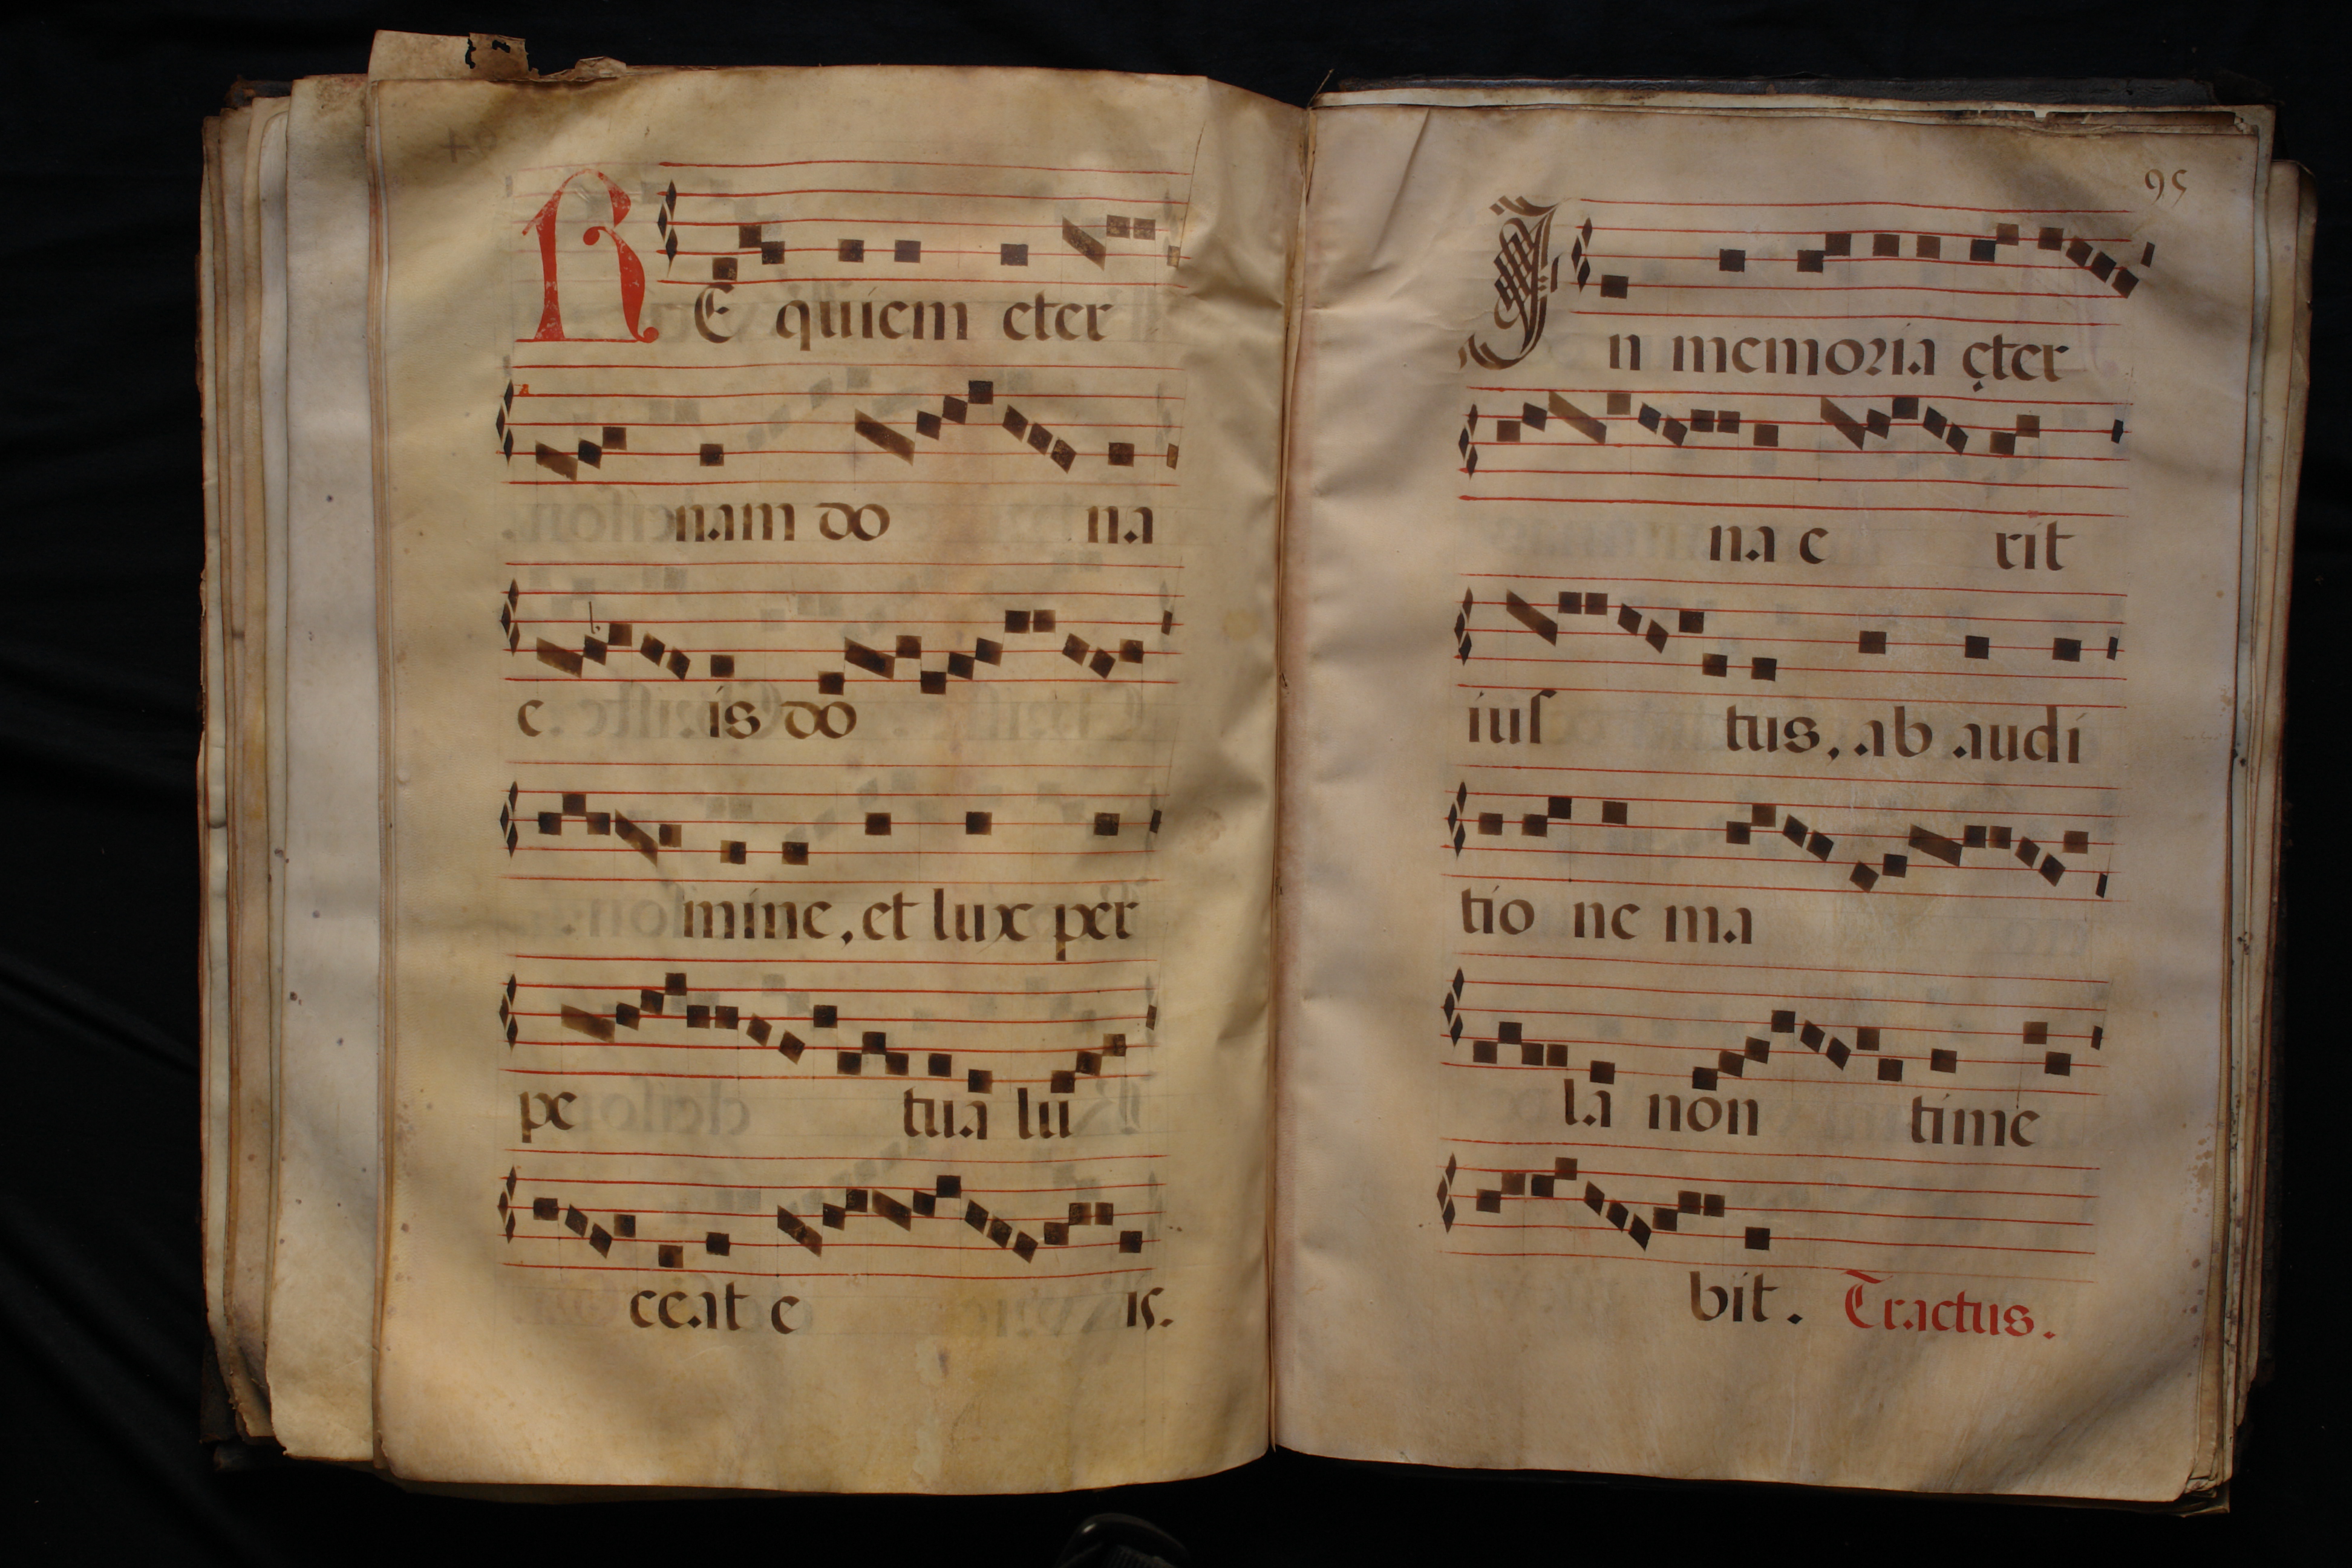 RE quiem eter
nam do na
e is do
mine, et lux per
pe tua lu
ceat e is.
95
In memoria ęter
na e rit
ius tus, ab audi
tio ne ma
la non time
bit. Tractus.